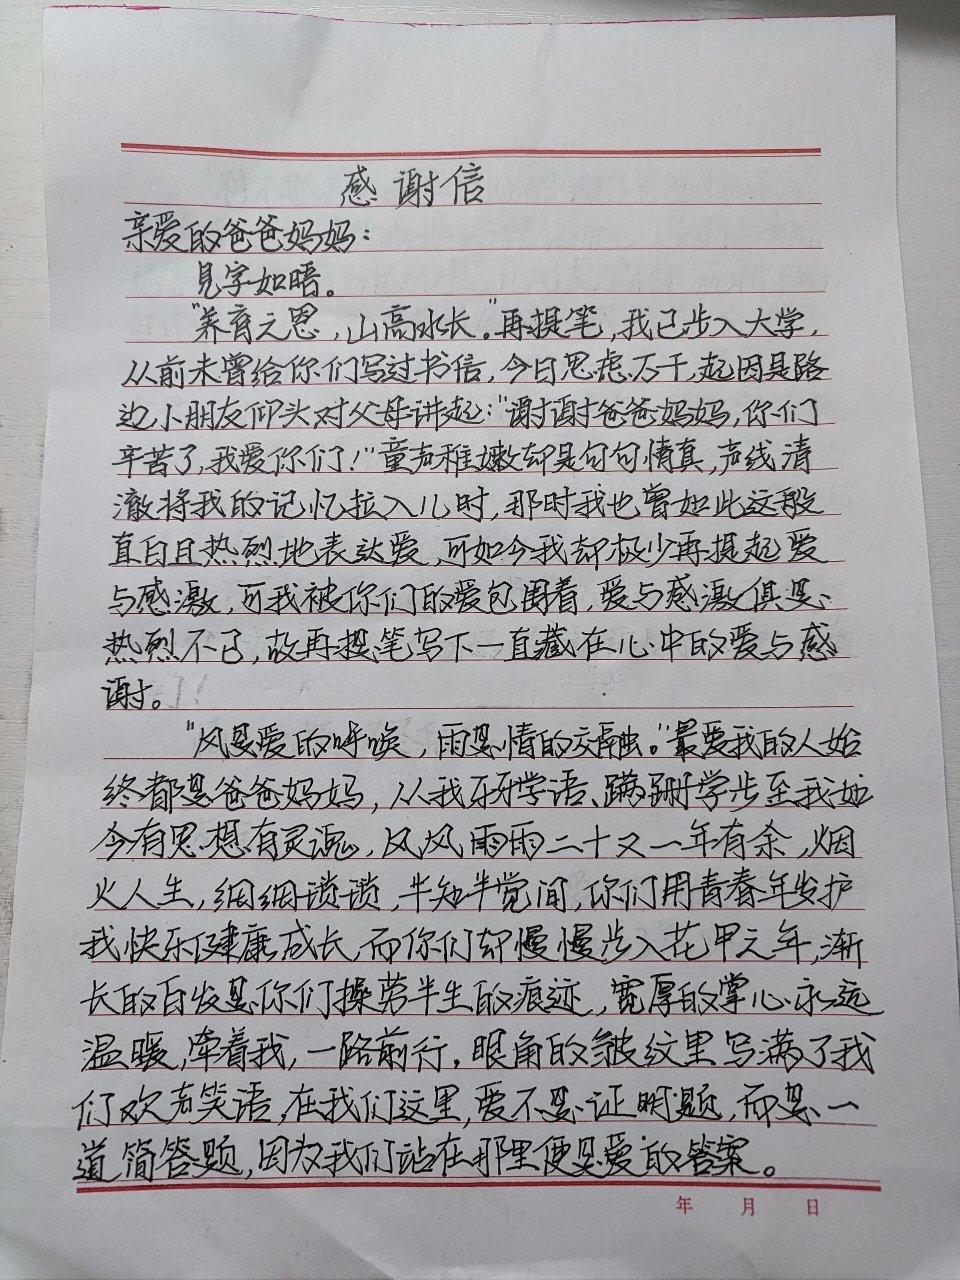 感谢信
亲爱的爸爸妈妈：
见字如晤。
"养育之恩，山高水长。"再提笔，我已步入大学，
从前未曾给你们写过书信，今日思虑万千，起因是路
边小朋友仰头对父母讲起："谢谢爸爸妈妈，你们
辛苦了，我爱你们！"童声稚嫩却是句句情真，声线清
澈将我的记忆拉入儿时，那时我也曾如此这般
直白且热烈地表达爱，可如今我却极少再提起爱
与感激，可我被你们的爱包围着，爱与感激俱是
热烈不已，故再提笔写下一直藏在心中的爱与感
谢。
"风是爱的呼唤，雨是情的交融。"最爱我的人始
终都是爸爸妈妈，从我牙牙学语、蹒跚学步至我如
今有思想有灵魂，风风雨雨二十又一年有余，烟
火人生，细细琐琐，半知半觉间，你们用青春年岁护
我快乐健康成长，而你们却慢慢步入花甲之年，渐
长的白发是你们操劳半生的痕迹，宽厚的掌心永远
温暖，牵着我，一路前行，眼角的皱纹里写满了我
们欢声笑语，在我们这里，爱不是证明题，而是一
道简答题，因为我们站在那里便是爱的答案。
年 月 日